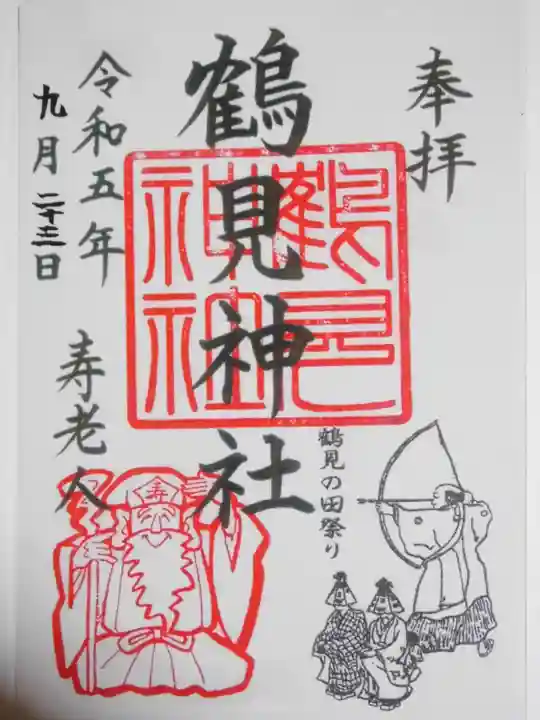 奉拝
鶴見神社
鶴見神社
鶴見の田祭り
令和五年
九月二十三日
寿老人
寿